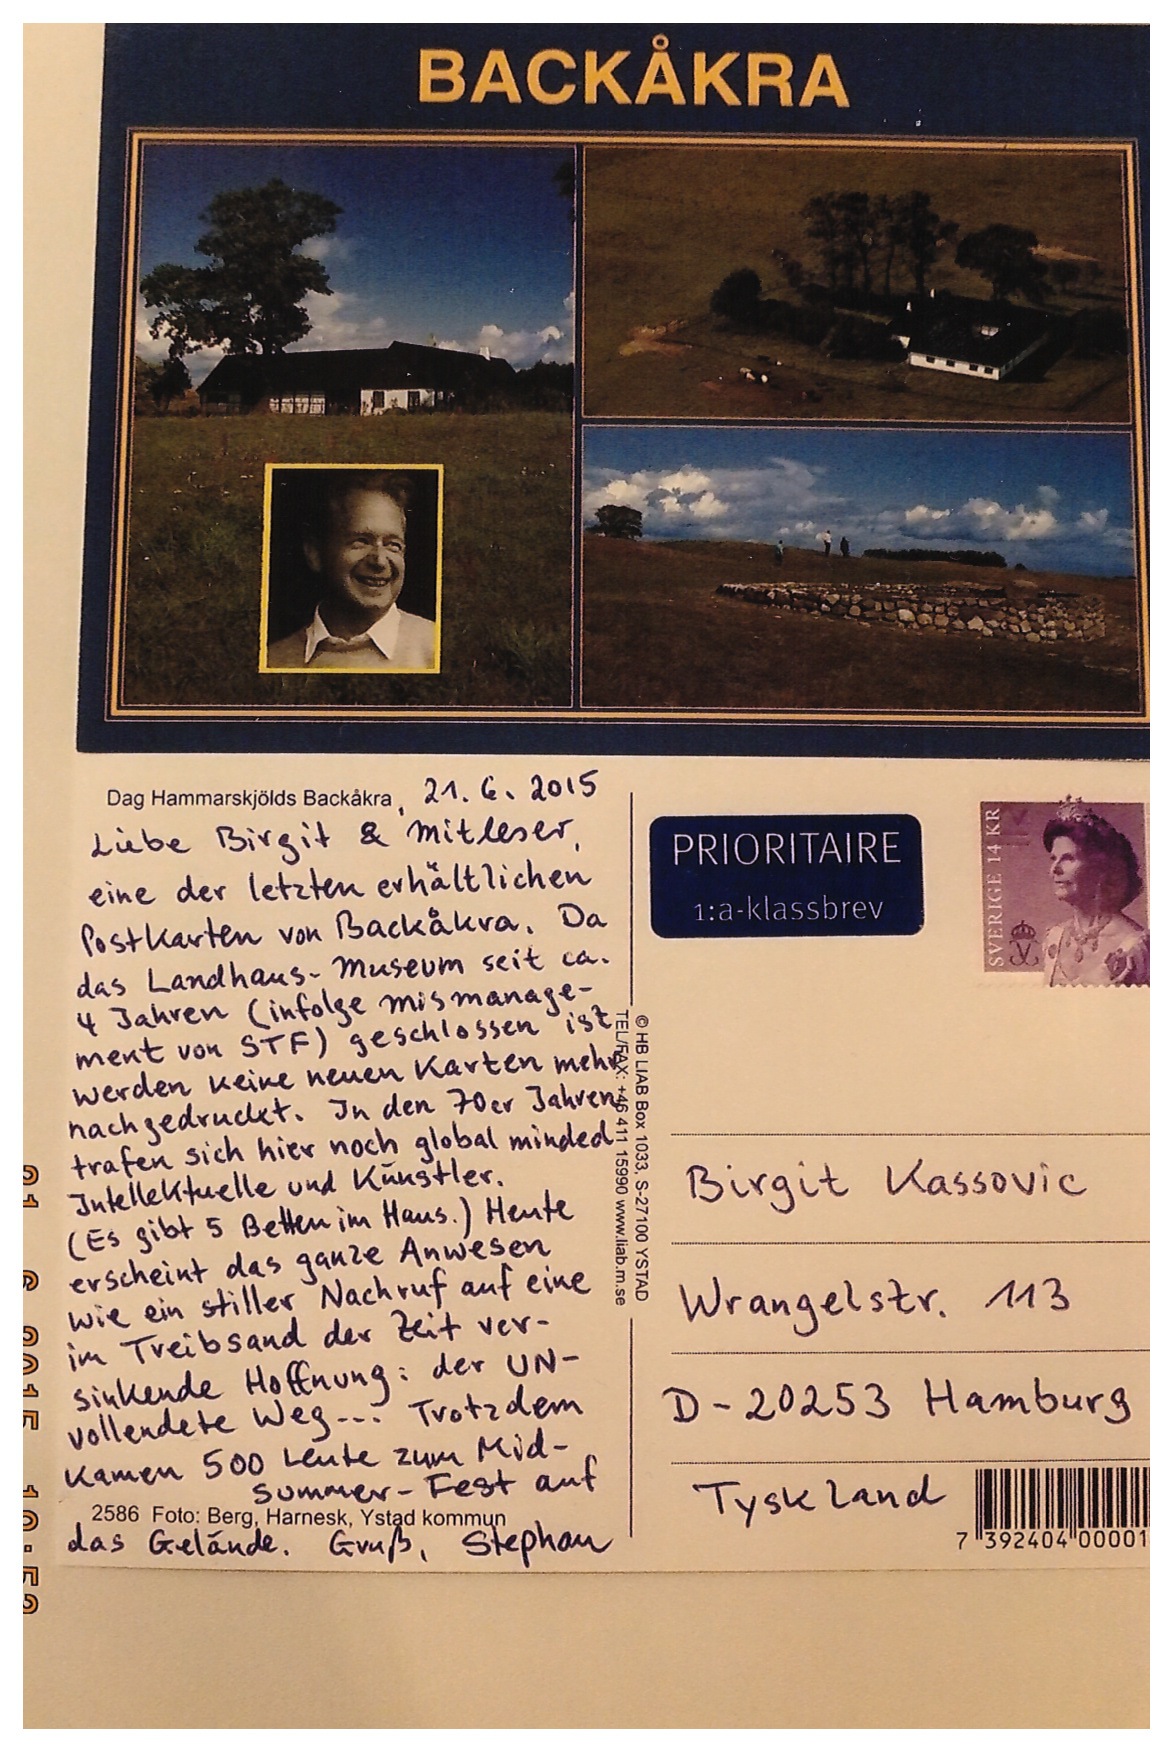 BACKÅKRA
Dag Hammarskjölds Backåkra, 21. 6. 2015
Liebe Birgit & Mitleser,
eine der letzten erhältlichen
Postkarten von Backåkra. Da
das Landhaus-Museum seit ca.
4 Jahren (infolge Mismanage-
ment von STF) geschlossen ist,
werden keine neuen Karten mehr
nachgedruckt. In den 70er Jahren
trafen sich hier noch global minded
Intellektuelle und Künstler.
(Es gibt 5 Betten im Haus.) Heute
erscheint das ganze Anwesen
wie ein stiller Nachruf auf eine
im Treibsand der Zeit ver-
sinkende Hoffnung: der UN-
vollendete Weg... Trotzdem
kamen 500 Leute zum Mid-
summer-Fest auf
2586 Foto: Berg, Harnesk, Ystad kommun
das Gelände. Gruß, Stephan
© HB LIAB Box 1033, S-27100 YSTAD
TEL/FAX: +46 411 15990 www.liab.m.se
PRIORITAIRE
1:a-klassbrev
SVERIGE 14 KR
Birgit Kassovic
Wrangelstr. 113
D-20253 Hamburg
Tyskland
7 392404 00001
21 6 2015